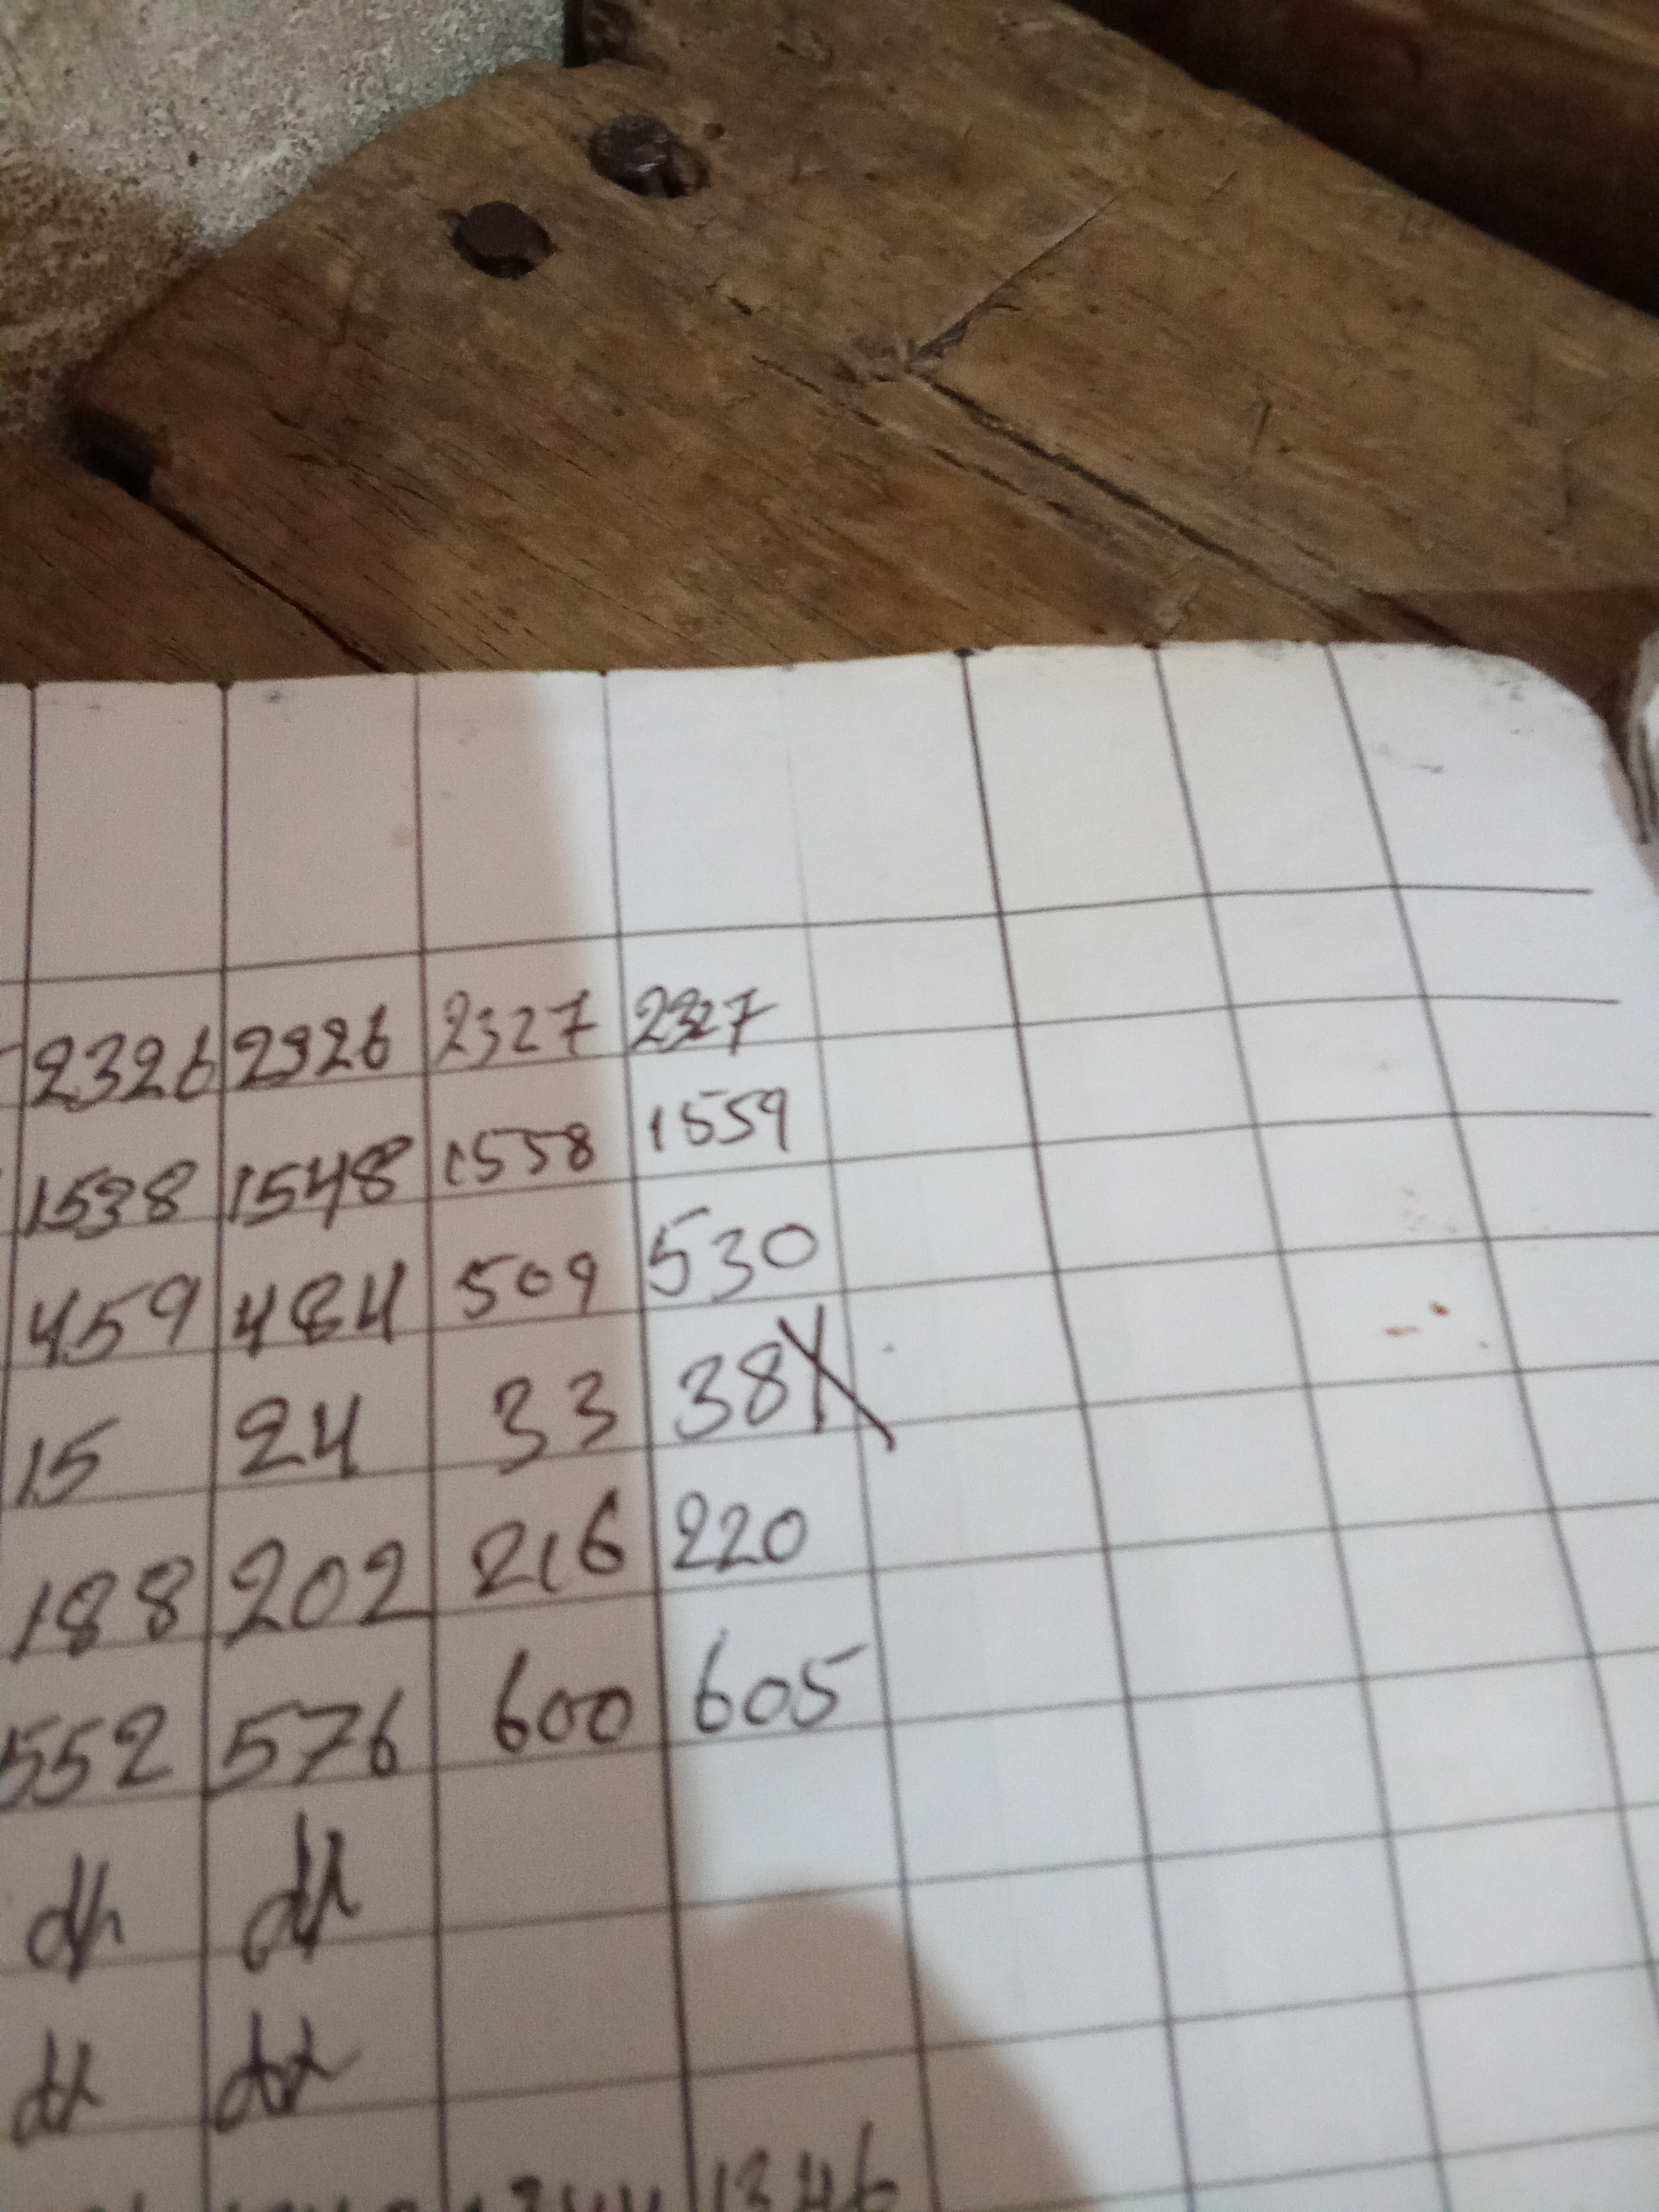 2326 2326 2327 2327
1538 1548 1558 1559
459 484 509 530
15 24 33 38
188 202 216 220
552 576 600 605
1344 1346